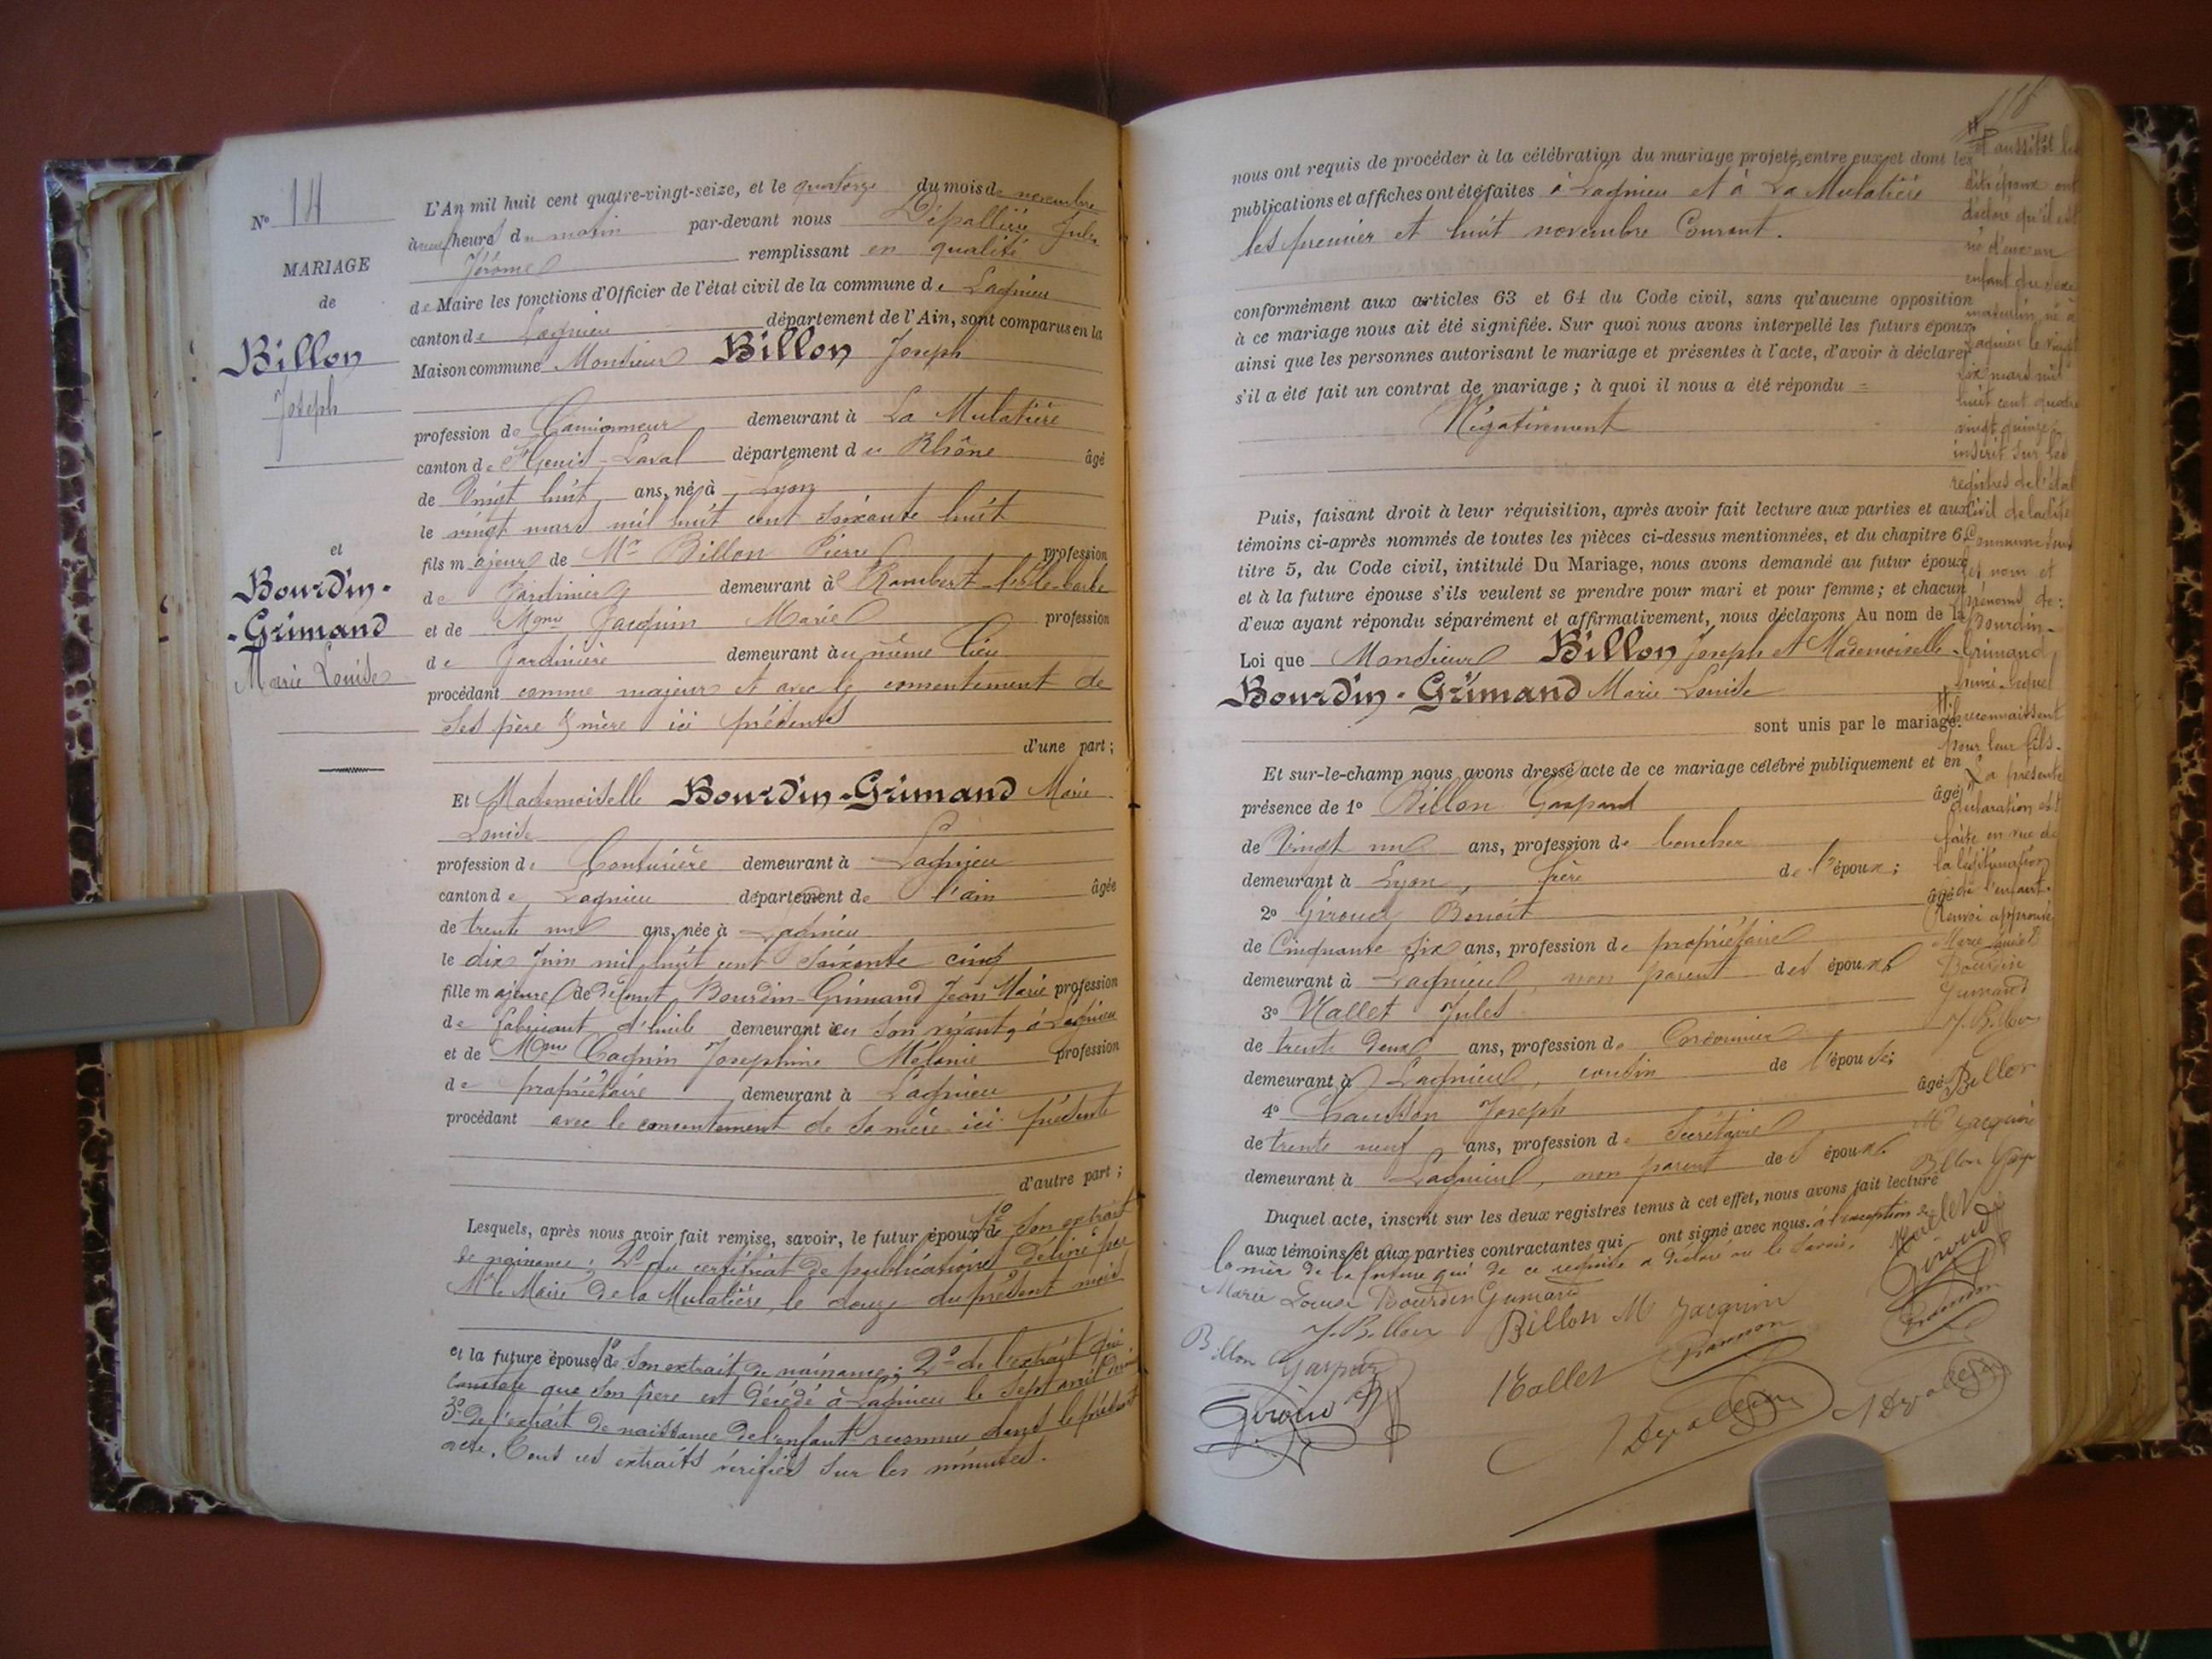 N° 14
MARIAGE
de
Billon
Joseph
et
Bourdin-
-Grimand
Marie Louise
L'An mil huit cent quatre-vingt-seize, et le quatorze du mois de novembre
à neuf heures du matin par-devant nous Dépallière Jules
Jérôme remplissant en qualité
de Maire les fonctions d'Officier de l'état civil de la commune de Lagnieu
canton de Lagnieu département de l'Ain, sont comparus en la
Maison commune Monsieur Billon Joseph
profession de Camionneur demeurant à La Mulatière
canton de St Genis-Laval département du Rhône âgé
de Vingt huit ans, né à Lyon
le vingt mars mil huit cent soixante huit
fils majeur de Mr Billon Pierre profession
de Jardinier demeurant à St Rambert-l'Isle-barbe
et de Mme Jacquin Marie profession
de Jardinière demeurant au même lieu
procédant comme majeur et avec le consentement de
ses père & mère ici présents
d'une part ;
Et Mademoiselle Bourdin-Grimand Marie
Louise
profession de Couturière demeurant à Lagnieu
canton de Lagnieu département de l'ain âgée
de trente un ans, née à Lagnieu
le dix Juin mil huit cent soixante cinq
fille majeure de défunt Bourdin-Grimand Jean Marie profession
de fabricant d'huile demeurant en son vivant à Lagnieu
et de Mme Cagnin Joséphine Mélanie profession
de propriétaire demeurant à Lagnieu
procédant avec le consentement de sa mère ici présente
d'autre part ;
Lesquels, après nous avoir fait remise, savoir, le futur époux 1° de son extrait
de naissance ; 2° du certificat de publications délivré par
Mr le Maire de la Mulatière, le douze du présent mois
et la future épouse 1° de son extrait de naissance ; 2° de l'extrait qui
constate que son père est décédé à Lagnieu le sept avril
3° de l'extrait de naissance de l'enfant reconnu dans le présent
acte. Tous ces extraits vérifiés sur les minutes.
118
nous ont requis de procéder à la célébration du mariage projeté entre eux et dont les
publications et affiches ont été faites à Lagnieu et à La Mulatière
les premier et huit novembre Courant.
conformément aux articles 63 et 64 du Code civil, sans qu'aucune opposition
à ce mariage nous ait été signifiée. Sur quoi nous avons interpellé les futurs époux
ainsi que les personnes autorisant le mariage et présentes à l'acte, d'avoir à déclarer
s'il a été fait un contrat de mariage ; à quoi il nous a été répondu =
Négativement
Puis, faisant droit à leur réquisition, après avoir fait lecture aux parties et aux
témoins ci-après nommés de toutes les pièces ci-dessus mentionnées, et du chapitre 6,
titre 5, du Code civil, intitulé Du Mariage, nous avons demandé au futur époux
et à la future épouse s'ils veulent se prendre pour mari et pour femme ; et chacun
d'eux ayant répondu séparément et affirmativement, nous déclarons Au nom de la
Loi que Monsieur Billon Joseph et Mademoiselle
Bourdin-Grimand Marie Louise
sont unis par le mariage. #
Et sur-le-champ nous avons dressé acte de ce mariage célébré publiquement et en
présence de 1° Billon Gaspard âgé
de Vingt un ans, profession de boucher
demeurant à Lyon, frère de l'époux ;
2° Giroud Benoit âgé
de Cinquante six ans, profession de propriétaire
demeurant à Lagnieu, non parent des époux
3° Mallet Jules
de trente deux ans, profession de Cordonnier
demeurant à Lagnieu, cousin de l'épouse ;
4° Chausson Joseph âgé
de trente neuf ans, profession de Secrétaire
demeurant à Lagnieu, non parent des époux.
Duquel acte, inscrit sur les deux registres tenus à cet effet, nous avons fait lecture
aux témoins et aux parties contractantes qui ont signé avec nous. à l'exception de
la mère de la future qui de ce requise a déclaré ne le savoir.
Marie Louise Bourdin Grimand
J. Billon Billon M Jacquin
Billon Gaspard
Mallet
Giroud
# et aussitôt les
dits époux ont
déclaré qu'il est
né d'eux un
enfant du sexe
masculin, né à
Lagnieu le vingt
six mars mil
huit cent quatre
vingt quinze,
inscrit sur les
registres de l'état
civil de ladite
Commune sous
les nom et
prénoms de :
Bourdin-
Grimand
lequel
ils reconnaissent
pour leur fils.
La présente
déclaration est
faite en vue de
la légitimation
de l'enfant.
Renvoi approuvé
Marie Louise
Bourdin
Grimand
J. Billon
Billon
M Jacquin
Billon Gasp
Mallet
Giroud